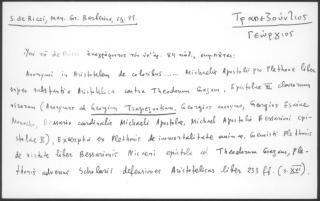 S. de Ricci, mss. Gr. Barberini, σg. 81.
Τραπεζούντιος
Γεώργιος
Ὑπὸ τοῦ de Ricci ἀναγράφονται
Anonymi in Aristotelem de coloribus..... Michaelis Apostolii pro Plethone liber
super substantia Aristotelica contra Theodorum Gazam, Epistolae III clarorum
virorum (Anonymi ad Georgium Trapezuntium, Georgius
Monacho, Bessario cardinalis Michaeli Apostolae, Michael Apostolis Bessarioni epi-
stolae II), Excerpta ex Plethonis de immortalitate animae, Gemisti Plethonis
de virtute liber Bessarionis Nicaeni epistola ad Theodorum Gazam, Ple-
thonis adversus Scholarii defensiones Aristotelicas liber 233 ff. (s. XVI).